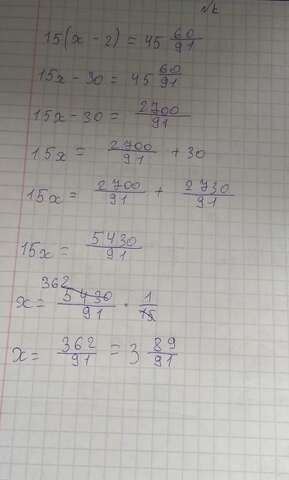 №
15(x - 2) = 45 60/91
15x - 30 = 45 60/91
15x - 30 = 2700/91
15x = 2700/91 + 30
15x = 2700/91 + 2730/91
15x = 5430/91
362
x = 5430/91 · 1/15
x = 362/91 = 3 89/91